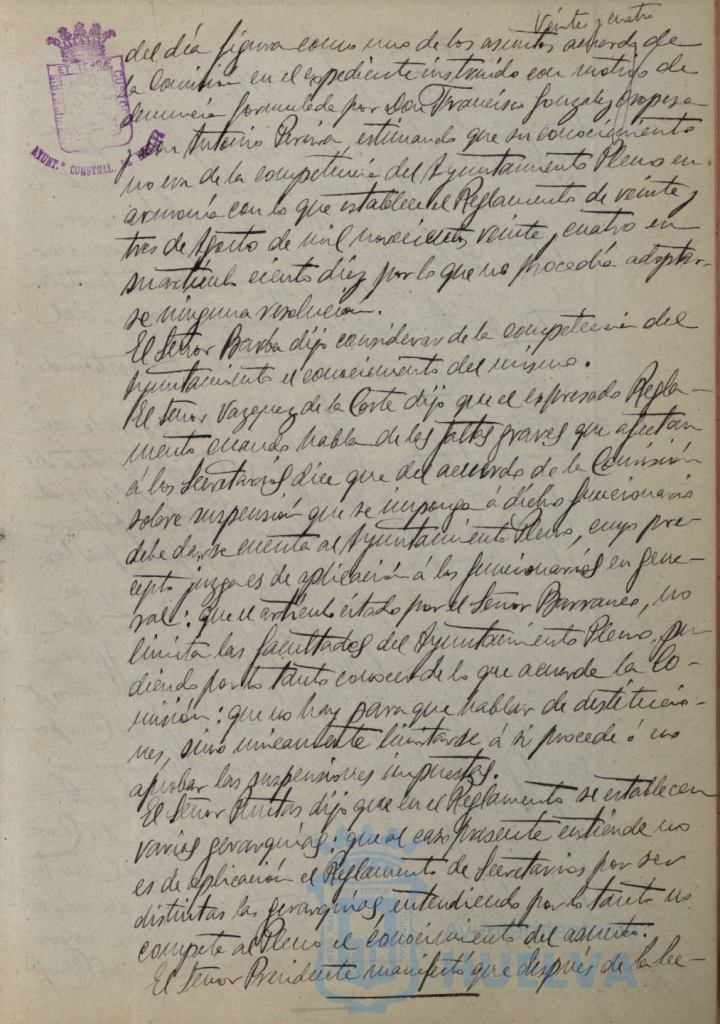 Veinte y cuatro
del día figura como uno de los asuntos acuerdo de
la Comisión en el expediente instruido con motivo de
denuncia formulada por Don Francisco Gonzalez Oropesa
y Don Antonio Pereira, estimando que su conocimiento
no era de la competencia del Ayuntamiento Pleno en
armonía con lo que establece el Reglamento de veinte y
tres de Agosto de mil novecientos veinte y cuatro en
su artículo ciento diez por lo que no procedía adoptar-
se ninguna resolución.
El Señor Barba dijo considerar de la competencia del
Ayuntamiento el conocimiento del mismo.
El Señor Vazquez de la Corte dijo que el expresado Regla-
mento cuando habla de las faltas graves que afectan
á los Secretarios dice que del acuerdo de la Comisión
sobre suspensión que se imponga á dicho funcionario
debe darse cuenta al Ayuntamiento Pleno, cuyo pre-
cepto juzga es de aplicación á los funcionarios en gene-
ral: que el artículo citado por el Señor Barranco, no
limita las facultades del Ayuntamiento Pleno, pu-
diendo por lo tanto conocer de lo que acuerde la Co-
misión: que no hay para que hablar de destitucio-
nes, sino unicamente limitarse á si procede ó no
aprobar las suspensiones impuestas.
El Señor dijo que en el Reglamento se establecen
varias gerarquías: que al caso presente entiende no
es de aplicación el Reglamento de Secretarios por ser
distintas las gerarquías, entendiendo por lo tanto no
compete al Pleno el conocimiento del asunto.
El Señor Presidente manifestó que despues de la lec-
AYUNT.º CONSTNAL. DE
HUELVA